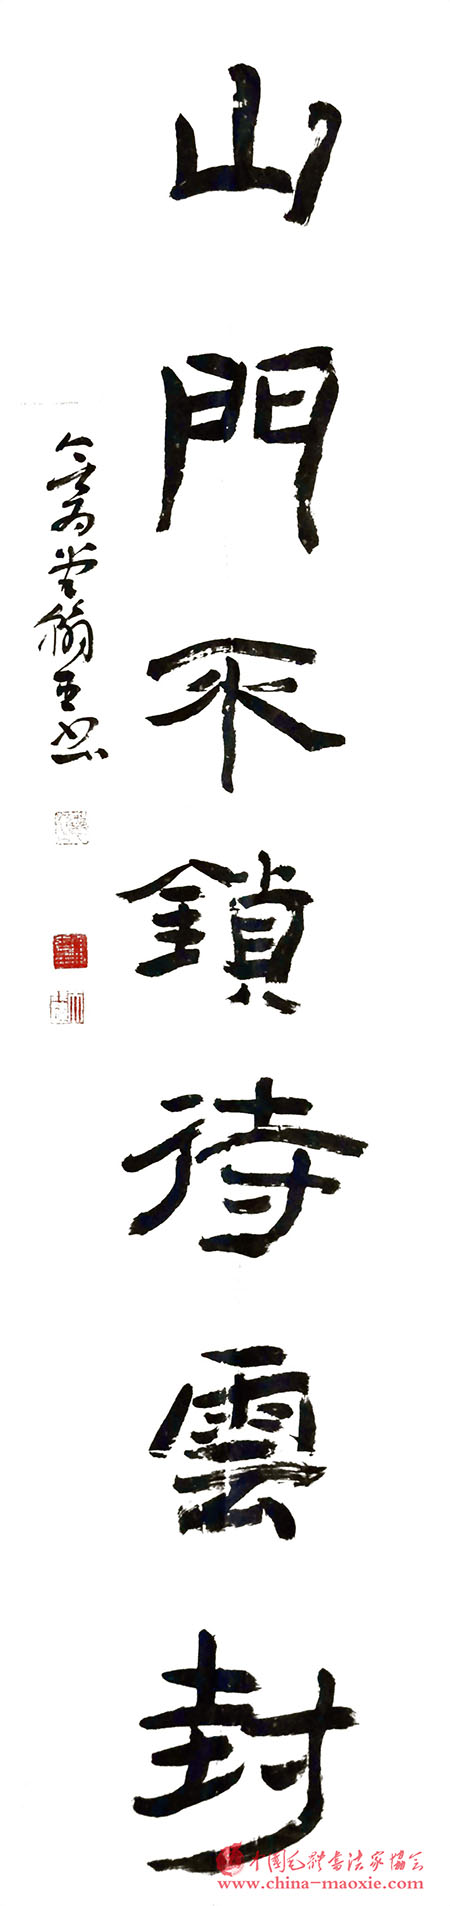 山門不鎖待雲封
中國毛體書法家協會
www.china-maoxie.com